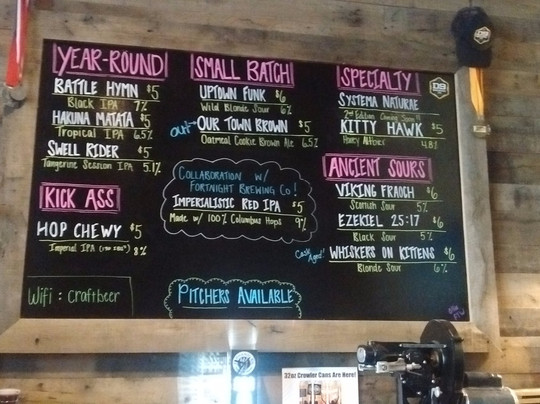 YEAR-ROUND
BATTLE HYMN $5
Black IPA 7%
HAKUNA MATATA $5
Tropical IPA 6.5%
SWELL RIDER $5
Tangerine Session IPA 5.1%
KICK ASS
HOP CHEWY $5
Imperial IPA 8%
Wifi: craftbeer
SMALL BATCH
UPTOWN FUNK $6
Wild Blonde Sour 6%
Out
OUR TOWN BROWN $5
Oatmeal Cookie Brown Ale 6.5%
COLLABORATION W/
FORTNIGHT BREWING CO!
IMPERIALISTIC RED IPA $5
Made w/ 100% Columbus Hops 9%
PITCHERS AVAILABLE
SPECIALTY
D9
SYSTEMA NATURAE
2nd Edition Coming Soon
KITTY HAWK $5
Honey 4.8%
ANCIENT SOURS
VIKING FRAOCH $6
Scottish Sour 5%
EZEKIEL 25:17 $6
Black Sour 5%
Cask Aged!
WHISKERS ON KITTENS $6
Blonde Sour 6%
32oz Crowler Cans Are Here!